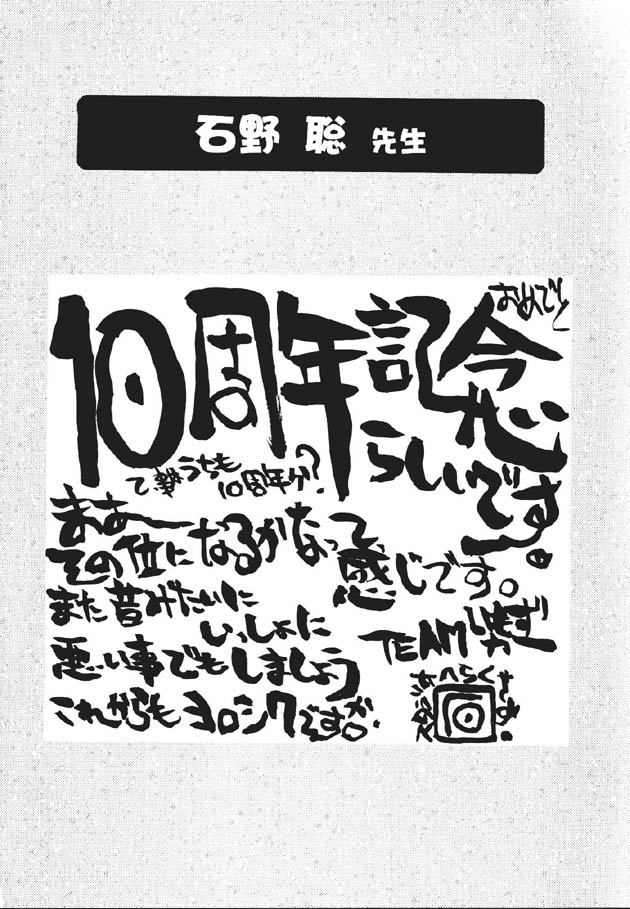 石野 聡 先生
10周年記念
おめでと
らしいです。
うちも
10周年か?
まあー
その位になるかなって
感じです。
また昔みたいに
いっしょに
悪い事でもしましょう
これからもヨロシクですがー。
TEAM